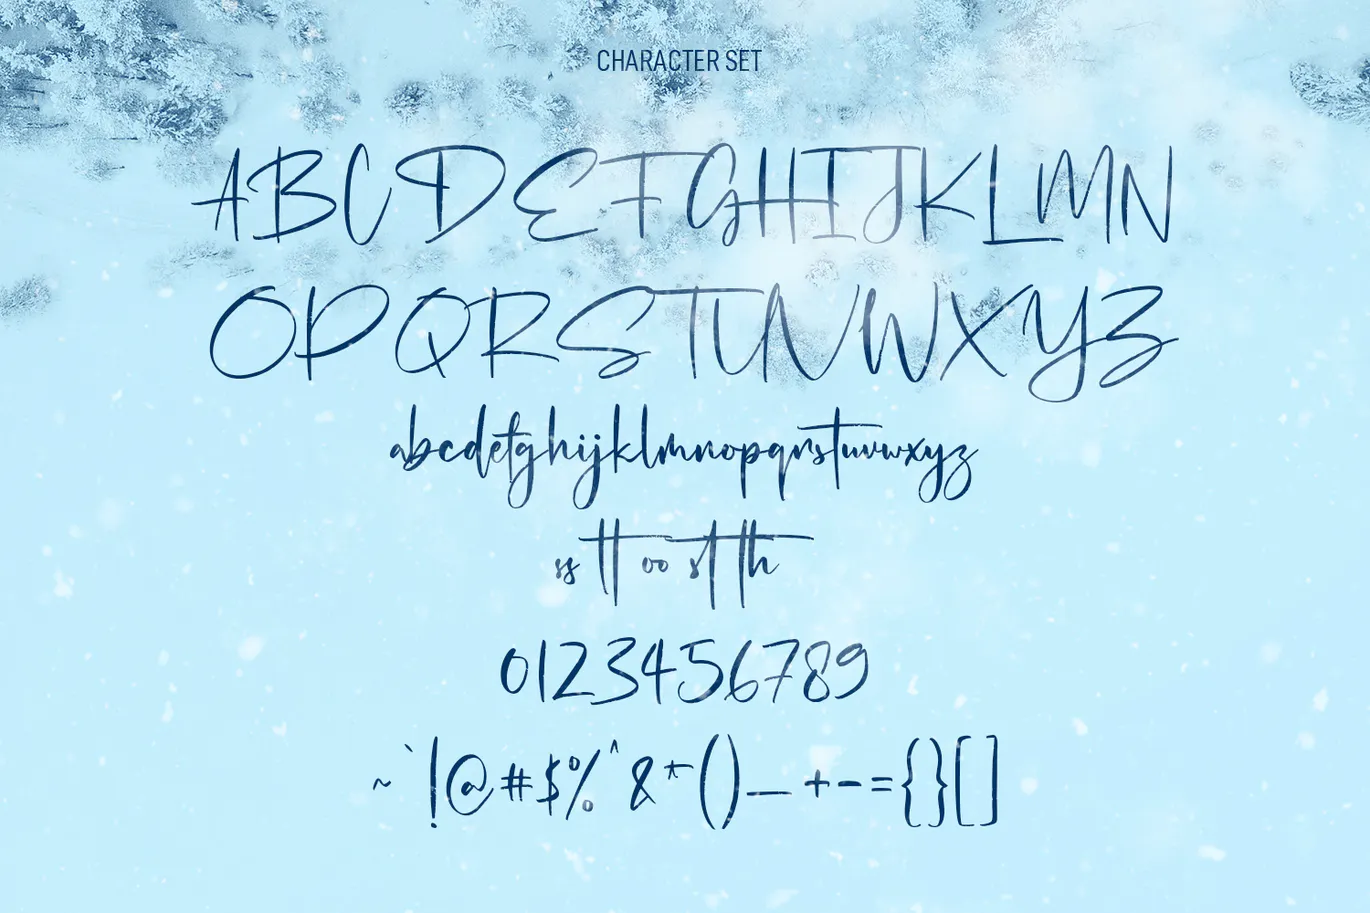 CHARACTER SET
ABCDEFGHIJKLMN
OPQRSTUVWXYZ
abcdefghijklmnopqrstuvwxyz
ss tt oo st th
0123456789
~`!@#$%^&*()_+-={}[]